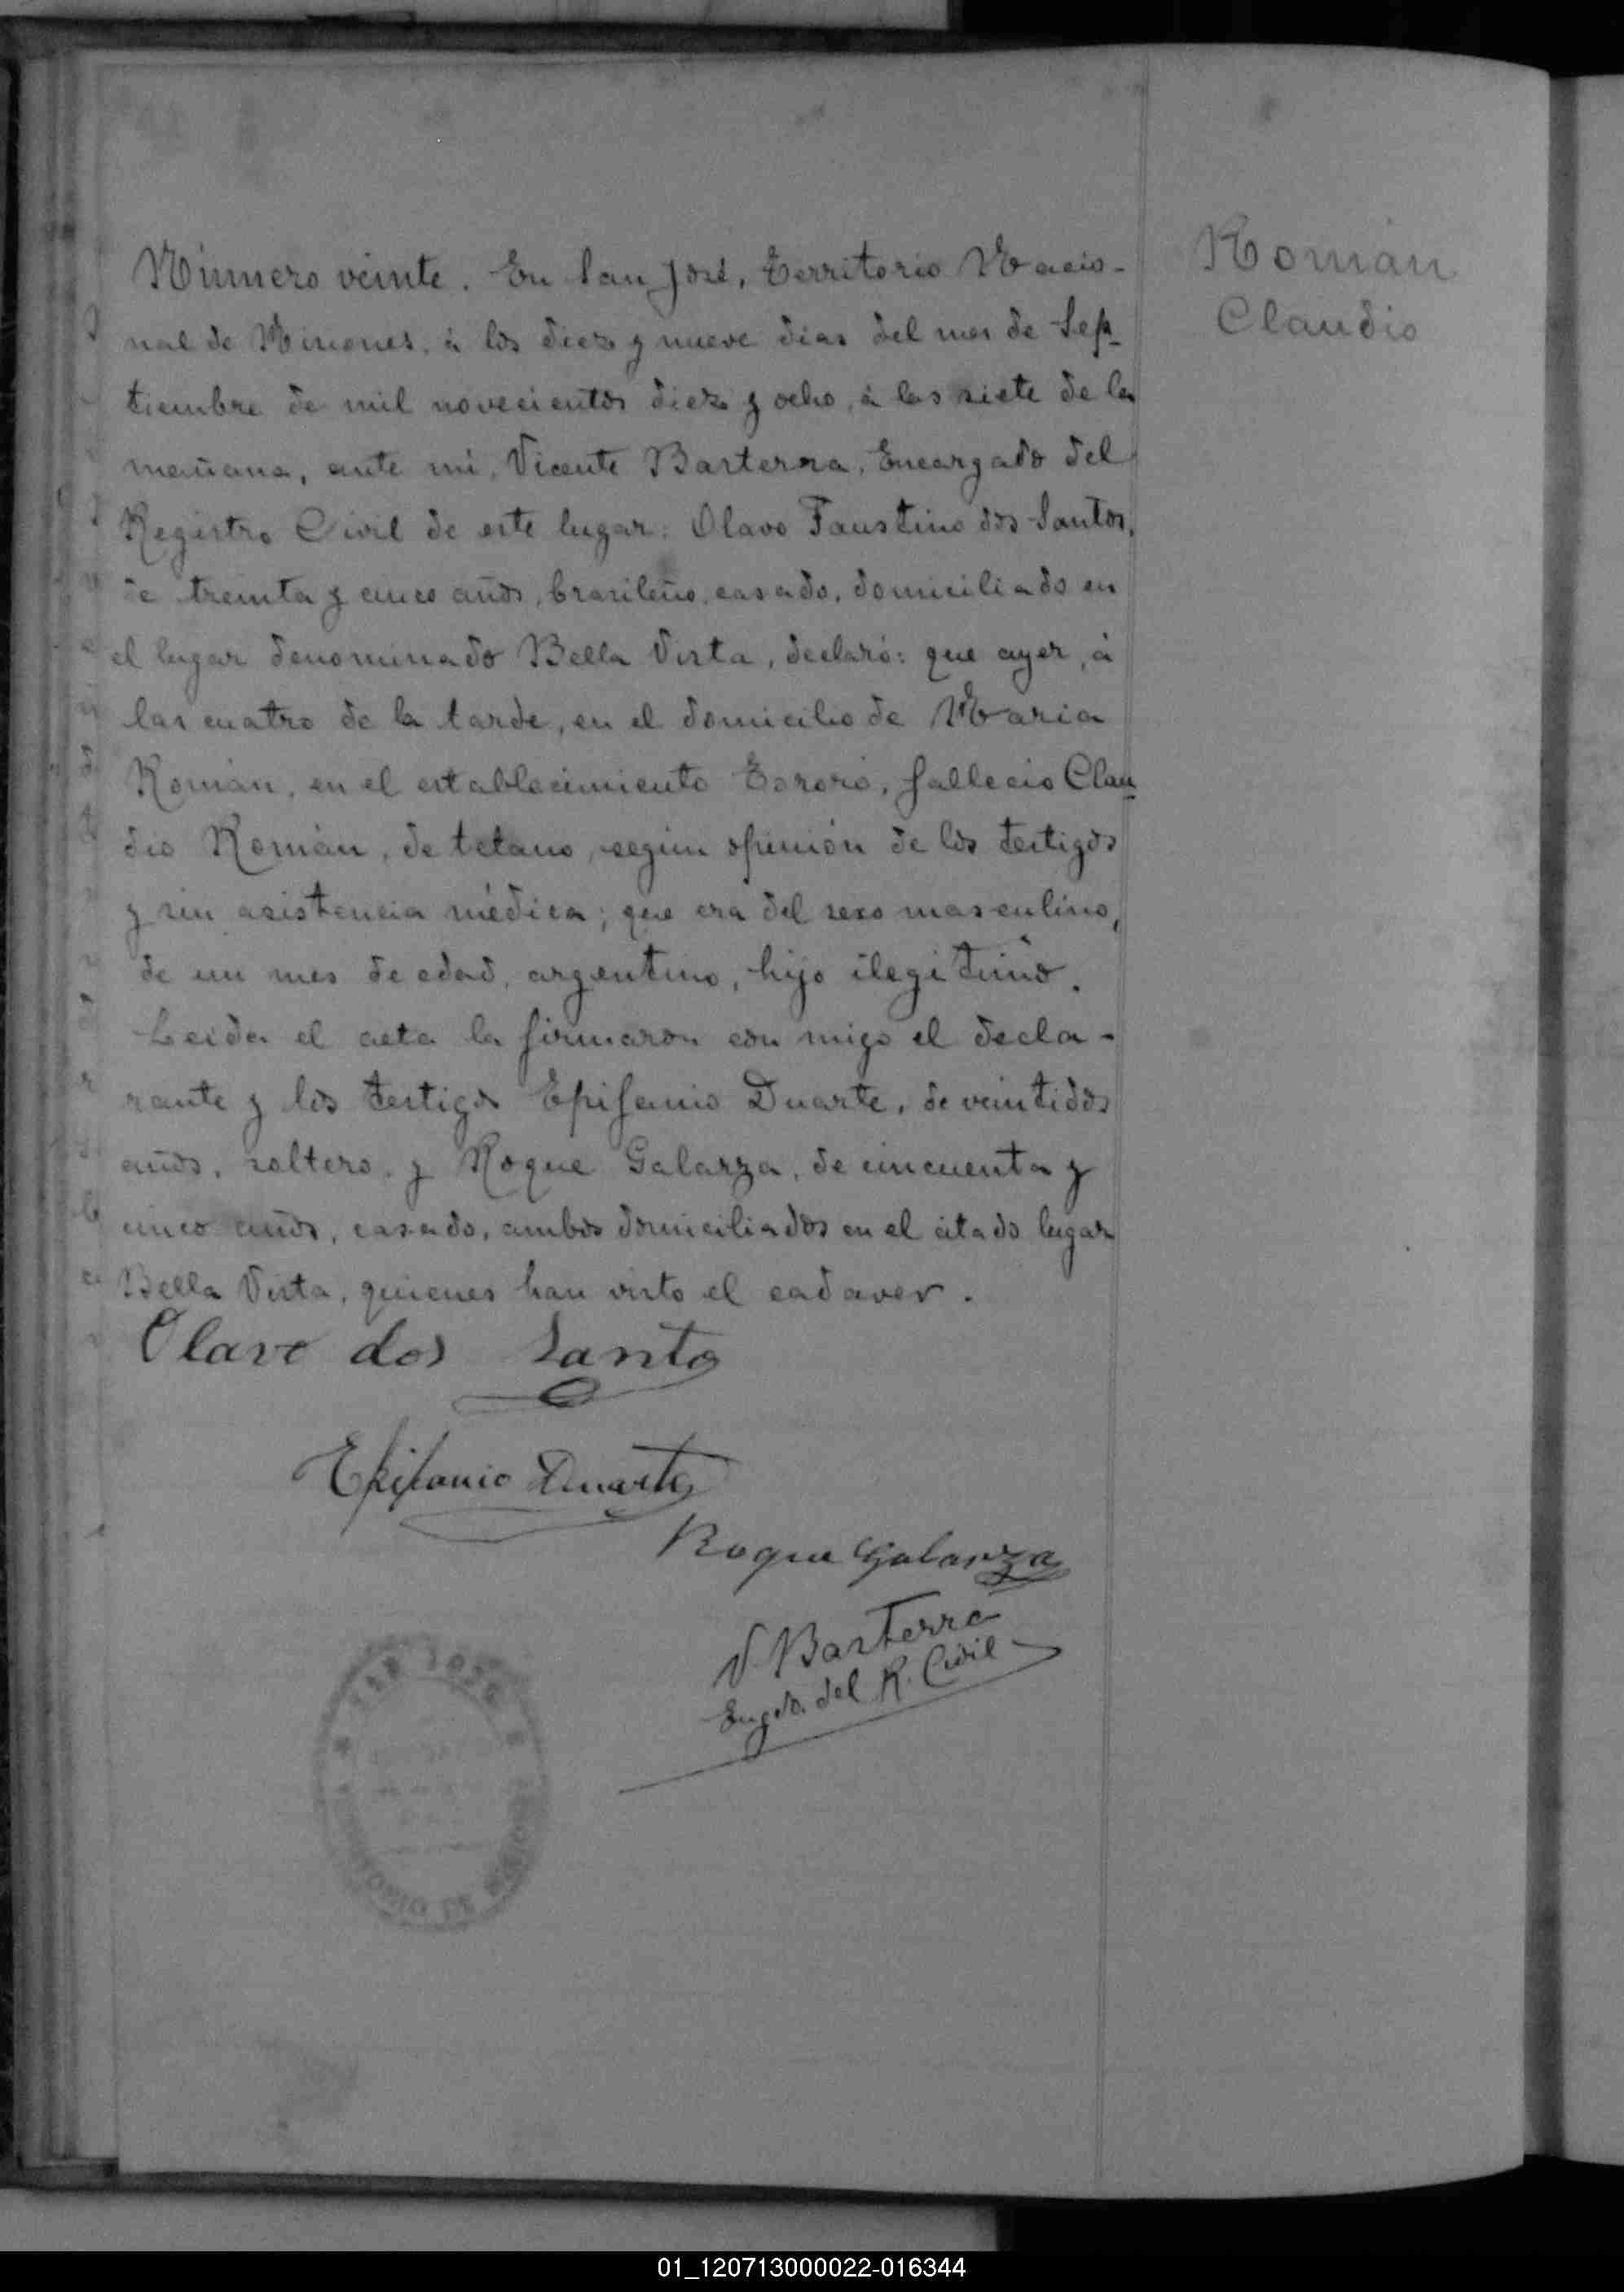 Número veinte. En San José, Territorio Nacio-
nal de Misiones, á los diez y nueve dias del mes de Sep-
tiembre de mil novecientos diez y ocho, á las siete de la
mañana, ante mi, Vicente Basterra, Encargado del
Registro Civil de este lugar: Olavo Faustino dos Santos,
de treinta y cinco años, brasileño, casado, domiciliado en
el lugar denominado Bella Vista, declaró: que ayer, á
las cuatro de la tarde, en el domicilio de Maria
Román, en el establecimiento Tororó, fallecio Clau
dio Román, de tetano, según opinión de los testigos
y sin asistencia médica; que era del sexo masculino,
de un mes de edad, argentino, hijo ilegitimo.
Leida el acta la firmaron con migo el decla-
rante y los testigos Epifanio Duarte, de veintidos
años, soltero, y Roque Galarza, de cincuenta y
cinco años, casado, ambos domiciliados en el citado lugar
Bella Vista, quienes han visto el cadaver.
Olavo dos Santo
Epifanio Duarte
Roque Galarza
V. Basterra
Engdo. del R. Civil
Román
Claudio
SAN JOSÉ
TERRITORIO DE MISIONES
01_120713000022-016344